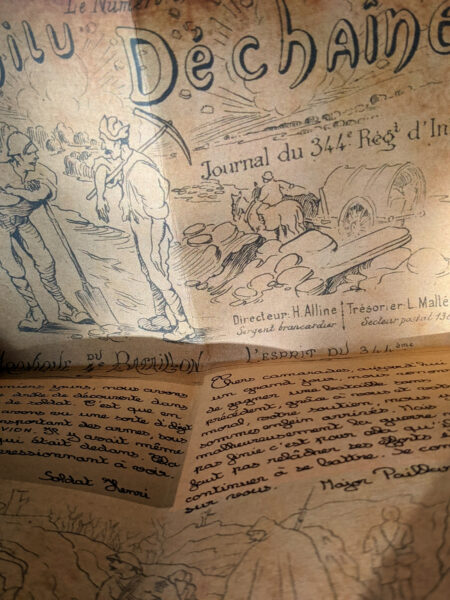 Le Numér
oilu Déchaîné
Journal du 344e Régt d'In
Directeur: H. Alline
Sergent brancardier
Trésorier: L. Malté
Secteur postal 13
au 7e BATAILLON
L'ESPRIT DU 344ème
jours, nous avons
de découverte dans
de soldat. C'est que en
avons vu une sorte d'
transportant des armes, sous
Y avait même
qui était dedans.
ressionnant à voir.
Soldat Henri
Chers camarades, aujourd'hui
un grand jour, nous
de gagner une bataille
président, grâce à vous et votre
moral, votre nation, nous
sommes enfin arrivés. Mais
malheureusement la guerre
pas finie c'est pour cela qu'il
faut pas relâcher ses efforts
continuer à se battre. Je com
sur vous.
Major Pailleur